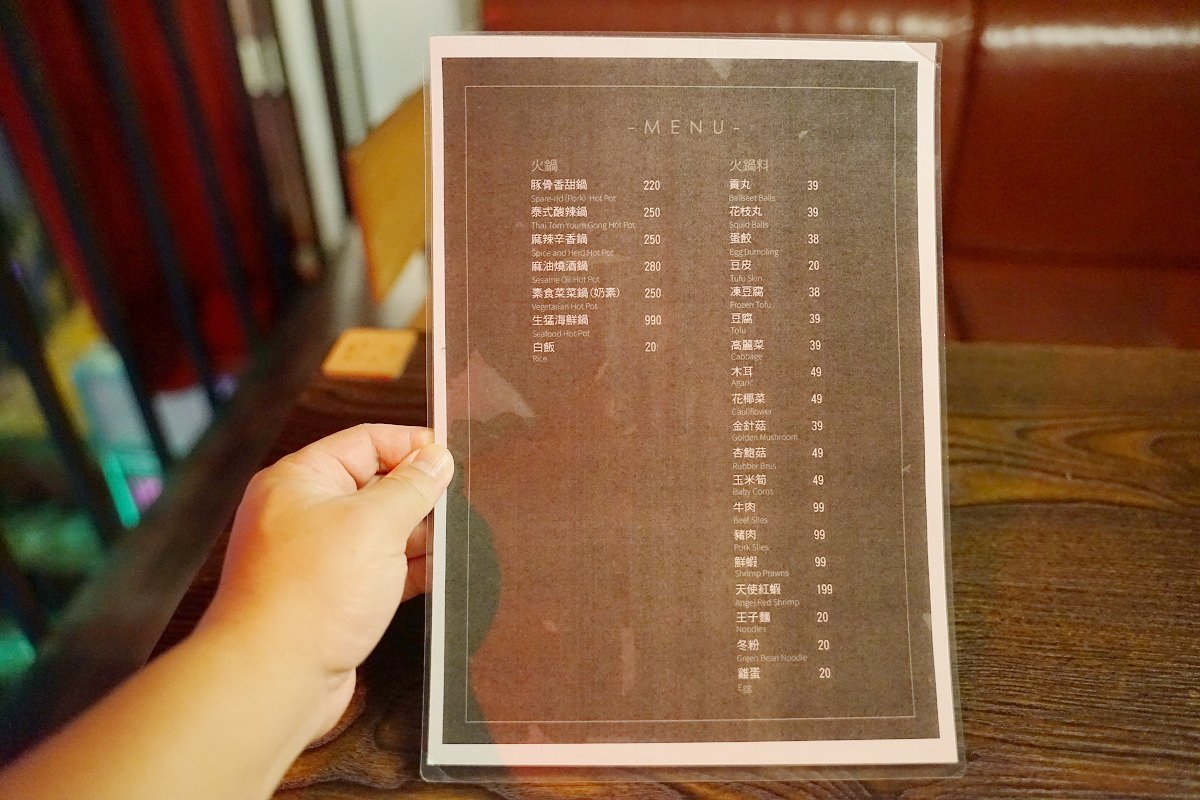 -MENU-
火鍋
豚骨香甜鍋 220
Spare-rid (Pork) Hot Pot
泰式酸辣鍋 250
Thai Tom Youm Gong Hot Pot
麻辣辛香鍋 250
Spice and Herd Hot Pot
麻油燒酒鍋 280
Sesame Oil Hot Pot
素食菜菜鍋(奶素) 250
Vegetarian Hot Pot
生猛海鮮鍋 990
Seafood Hot Pot
白飯 20
Rice
火鍋料
貢丸 39
Ballseet Balls
花枝丸 39
Squid Balls
蛋餃 38
Egg Dumpling
豆皮 20
Tufu Skin
凍豆腐 38
Frozen Tofu
豆腐 39
Tofu
高麗菜 39
Cabbage
木耳 49
Agaric
花椰菜 49
Cauliflower
金針菇 39
Golden Mushroom
杏鮑菇 49
Rubber Brus
玉米筍 49
Baby Corns
牛肉 99
Beef Slies
豬肉 99
Pork Slies
鮮蝦 99
Shrimp Prawns
天使紅蝦 199
Angel Red Shrimp
王子麵 20
Noodles
冬粉 20
Green Bean Noodle
雞蛋 20
Egg